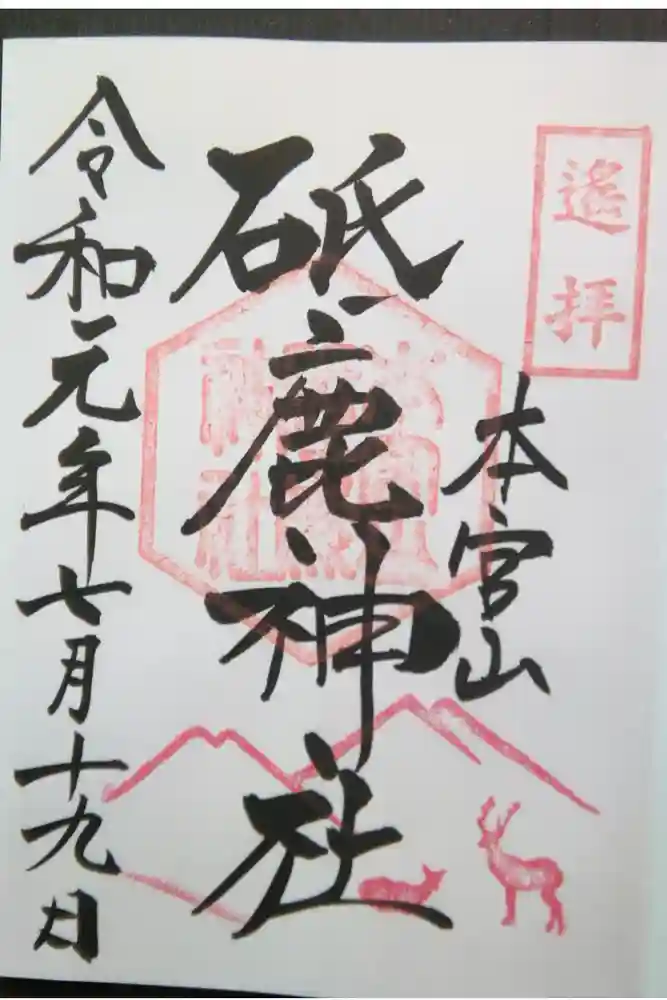 遙拝
本宮山
砥鹿神社
令和元年七月十九日